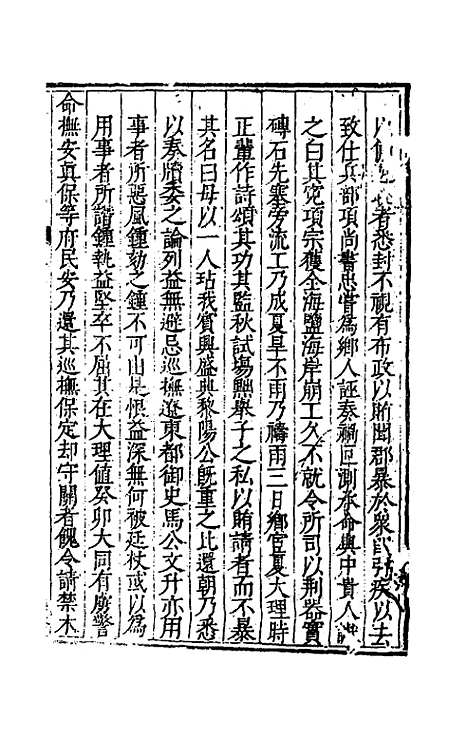 以 者悉封不視有布政以賄聞郡暴於衆 引疾以去
致仕兵部項尚書忠嘗爲鄉人誣奏禍叵測承命與中貴人
之白其寃項宗獲全海鹽海岸崩工久不就令所司以荆器實
磚石先塞旁流工乃成夏旱不雨乃禱雨三日鄉官夏大理時
正輩作詩頌其功其監秋試場黜舉子之私以賄請者而不暴
其名曰毋以一人玷我賓興盛典黎陽公旣重之比還朝乃悉
以奏牘委之論列益無避忌巡撫遼東都御史馬公文升亦用
事者所惡風鍾劾之鍾不可由是恨益深無何被廷杖或以爲
用事者所譖鍾執益堅卒不屈其在大理值癸卯大同有虜警
命撫安眞保等府民安乃還其巡撫保定却守關者餽令請禁木